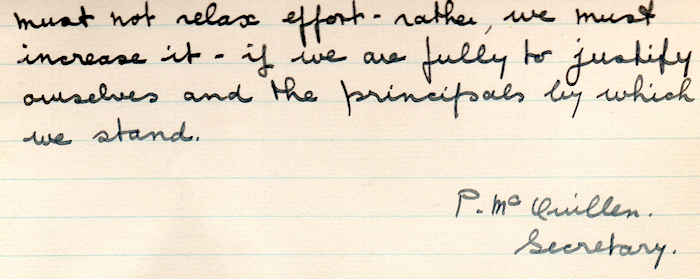 must not relax effort - rather, we must
increase it - if we are fully to justify
ourselves and the principals by which
we stand.
P. McQuillen.
Secretary.